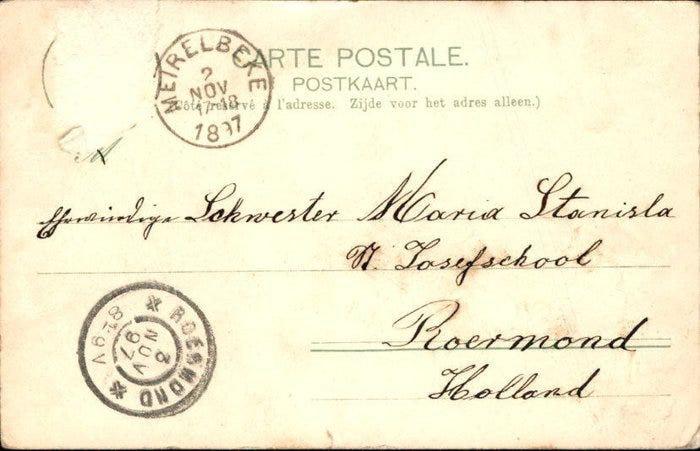 CARTE POSTALE.
POSTKAART.
(Côté réservé à l'adresse. Zijde voor het adres alleen.)
MEIRELBEKE
2
NOV
17-18
1897
Ehrwürdige Schwester Maria Stanisla
St. Josefschool
Roermond
Holland
ROERMOND
2
NOV
97
8-9V